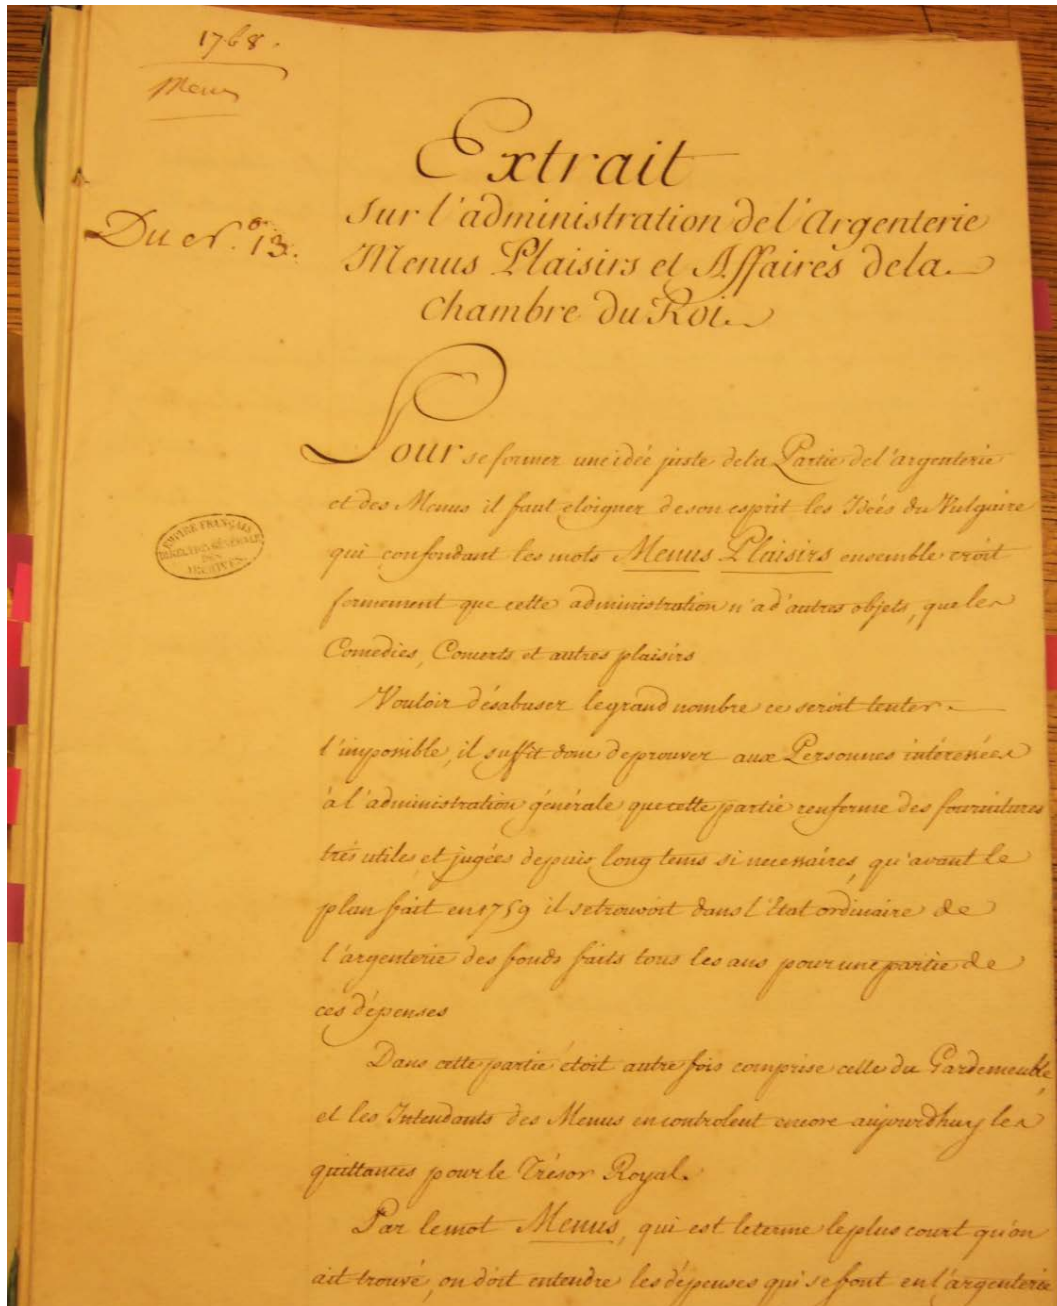 1768.
Menus
Extrait
Sur l'administration de l'Argenterie
Du N.º 13.
Menus Plaisirs et Affaires dela
Chambre du Roi.
Pour se former une idée juste dela Partie del'argenterie
et des Menus il faut eloigner deson esprit les Idées du Vulgaire
EMPIRE FRANÇAIS
DIRECTION GÉNÉRALE
DES
ARCHIVES
qui confondant les mots Menus Plaisirs ensemble croit
fermement que cette administration n'a d'autres objets, que les
Comedies, Concerts et autres plaisirs
Vouloir désabuser legrand nombre ce seroit tenter
l'impossible, il suffit donc deprouver aux Personnes intéressées
à l'administration générale que cette partie renferme des fournitures
très utiles et jugées depuis long tems si necessaires, qu'avant le
plan fait en 1759 il setrouvoit dans l'Etat ordinaire de
l'argenterie des fonds faits tous les ans pour une partie de
ces dépenses
Dans cette partie étoit autre fois comprise celle du Gardemeuble,
et les Intendants des Menus en controlent encore aujourdhuy les
quittances pour le Trésor Royal.
Par lemot Menus, qui est leterme leplus court qu'on
ait trouvé, on doit entendre les dépenses qui se font en l'argenterie